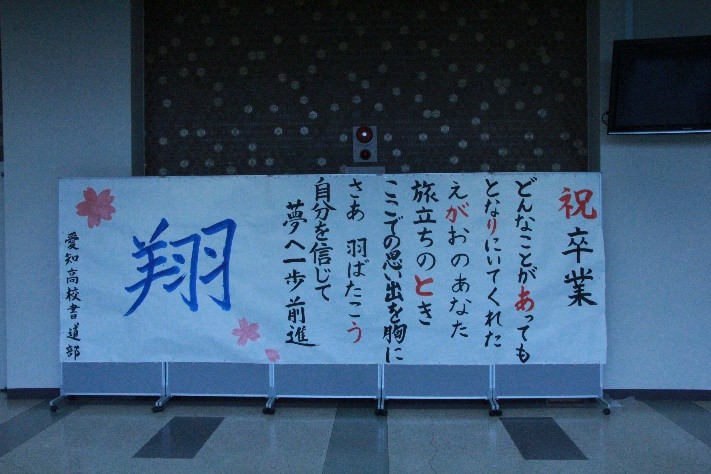 祝卒業
どんなことがあっても
となりにいてくれた
えがおのあなた
旅立ちのとき
ここでの思い出を胸に
さあ 羽ばたこう
自分を信じて
夢へ一歩前進
翔
愛知高校書道部